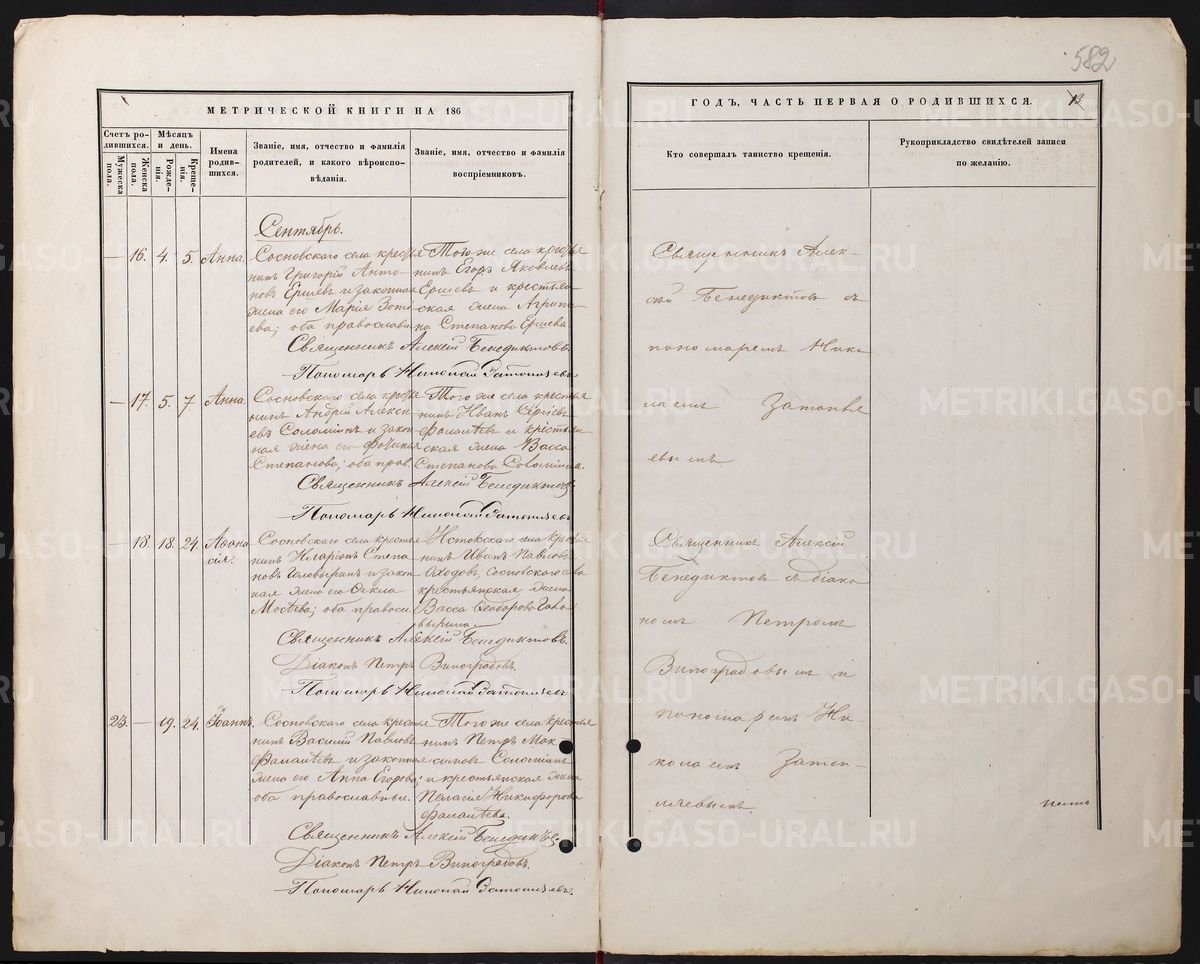 582
МЕТРИЧЕСКОЙ КНИГИ НА 186
Счетъ родившихся.
Мужеска пола.
Женска пола.
Мѣсяцъ и день.
Рожденія.
Крещенія.
Имена родившихся.
Званіе, имя, отчество и фамилія
родителей, и какого вѣроиспо-
вѣданія.
Званіе, имя, отчество и фамилія
воспріемниковъ.
Сентябрь.
— 16. 4. 5. Анна.
Сосновскаго села крестья
нинъ Григорій Анто-
новъ Ершевъ и законная
жена его Марія Зоти-
ева; оба православн.
Того же села крестья
нинъ Егоръ Яковлевъ
Ершевъ и крестьян-
ская жена Агрипи-
на Степанова Ершева
Священникъ Алексій Бенедиктовъ.
Пономарь Николай Затопляевъ
— 17. 5. 7 Анна.
Сосновскаго села крестья
нинъ Андрей Алексѣ-
евъ Соломинъ и закон
ная жена его
Степанова; оба прав.
Того же села крестья
нинъ Иванъ Сергіевъ
Фаталѣевъ и крестьян
ская жена Васса
Степанова Соломина.
Священникъ Алексій Бенедиктовъ
Пономарь Николай Затопляевъ
— 18. 18. 24. Аѳана
сія.
Сосновскаго села крестья
нинъ Иларіонъ Степа
новъ и закон
ная жена его Ѳекла
Мосѣева; оба правосл.
Истокскаго села крестья
нинъ Иванъ Павловъ
Сосновскаго села
крестьянская жена
Васса Ѳеодорова Голо
вырина
Священникъ Алексій Бенедиктовъ.
Діаконъ Петръ Виноградовъ.
Пономарь Николай Затопляевъ
23. — 19. 24. Іоаннъ.
Сосновскаго села крестья
нинъ Василій Павловъ
Фаталѣевъ и законная
жена его Анна Егорова;
оба православные.
Того же села крестья
нинъ Петръ Мак-
симовъ Соломинъ
и крестьянская жена
Пелагія Никифорова
Фаталѣева.
Священникъ Алексій Бенедиктовъ.
Діаконъ Петръ Виноградовъ.
Пономарь Николай Затопляевъ.
ГОДЪ, ЧАСТЬ ПЕРВАЯ О РОДИВШИХСЯ.
13
Кто совершалъ таинство крещенія.
Рукоприкладство свидѣтелей записи
по желанію.
Священникъ Алек-
сій Бенедиктовъ съ
пономаремъ Нико
лаемъ Затопля
евымъ
Священникъ Алексій
Бенедиктовъ съ діако
номъ Петромъ
Виноградовымъ и
пономаремъ Ни-
колаемъ Затоп-
ляевымъ
METRIKI.GASO-URAL.RU